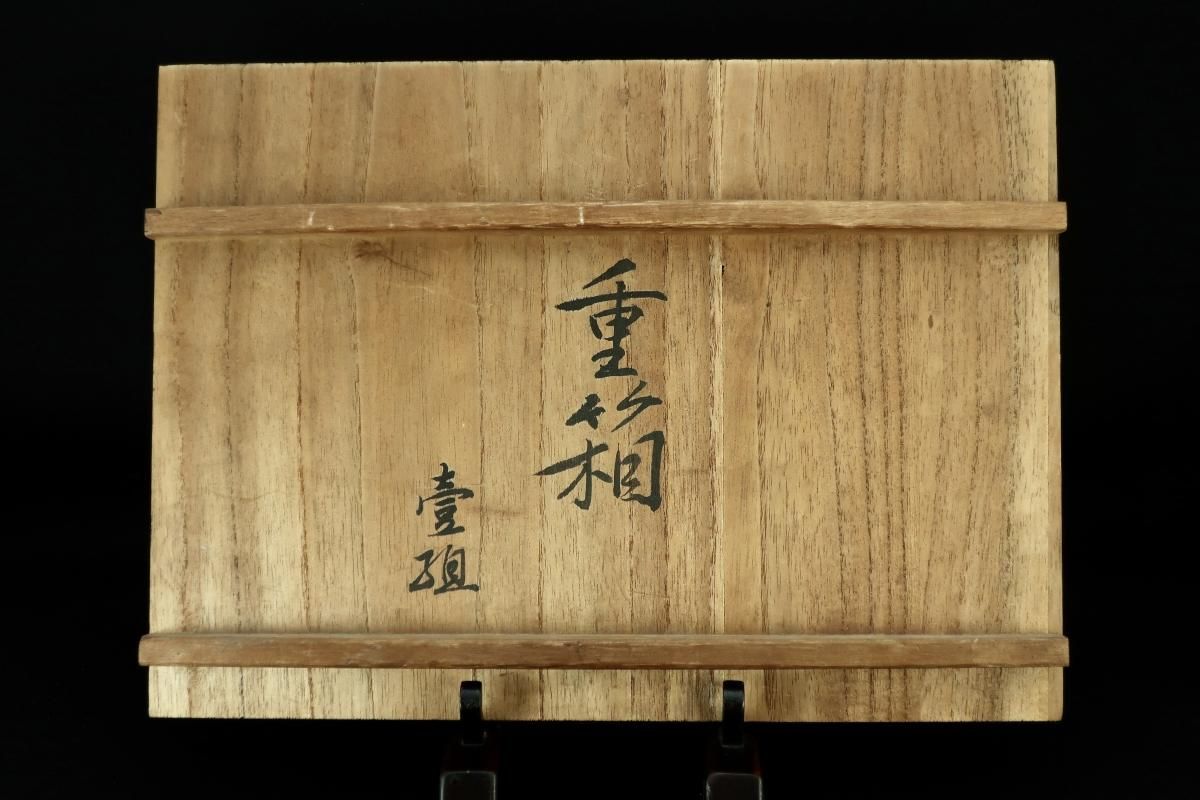 重箱
壹組